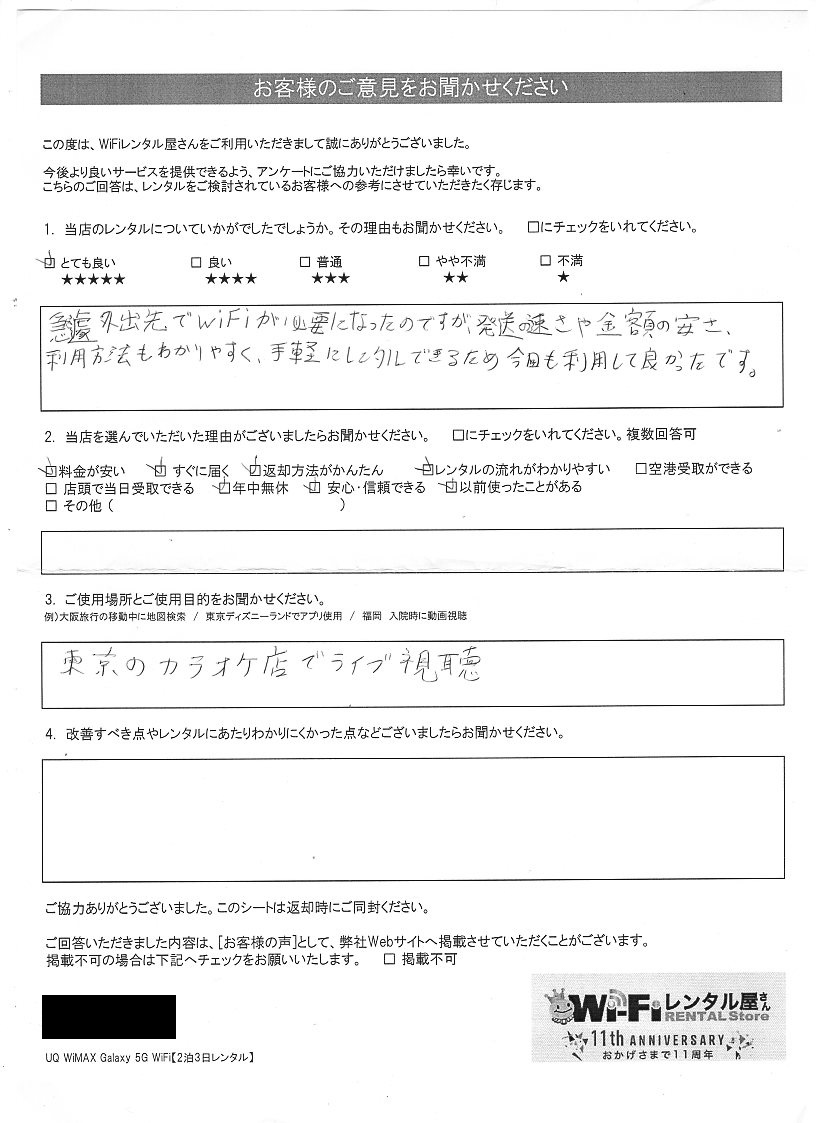 お客様のご意見をお聞かせください
この度は、WiFiレンタル屋さんをご利用いただきまして誠にありがとうございました。
今後より良いサービスを提供できるよう、アンケートにご協力いただけましたら幸いです。
こちらのご回答は、レンタルをご検討されているお客様への参考にさせていただきたく存じます。
1. 当店のレンタルについていかがでしたでしょうか。その理由もお聞かせください。 □にチェックをいれてください。
☑ とても良い □ 良い □ 普通 □ やや不満 □ 不満
★★★★★ ★★★★ ★★★ ★★ ★
急遽外出先でWiFiが必要になったのですが、発送の速さや金額の安さ、
利用方法もわかりやすく、手軽にレンタルできるため今回も利用して良かったです。
2. 当店を選んでいただいた理由がございましたらお聞かせください。 □にチェックをいれてください。複数回答可
☑料金が安い ☑ すぐに届く ☑返却方法がかんたん ☑レンタルの流れがわかりやすい □空港受取ができる
□ 店頭で当日受取できる ☑年中無休 ☑ 安心・信頼できる ☑以前使ったことがある
□ その他 ( )
3. ご使用場所とご使用目的をお聞かせください。
例)大阪旅行の移動中に地図検索 / 東京ディズニーランドでアプリ使用 / 福岡 入院時に動画視聴
東京のカラオケ店でライブ視聴
4. 改善すべき点やレンタルにあたりわかりにくかった点などございましたらお聞かせください。
ご協力ありがとうございました。このシートは返却時にご同封ください。
ご回答いただきました内容は、[お客様の声]として、弊社Webサイトへ掲載させていただくことがございます。
掲載不可の場合は下記へチェックをお願いいたします。 □ 掲載不可
Wi-Fiレンタル屋さん
RENTAL Store
11th ANNIVERSARY
おかげさまで11周年
UQ WiMAX Galaxy 5G WiFi【2泊3日レンタル】